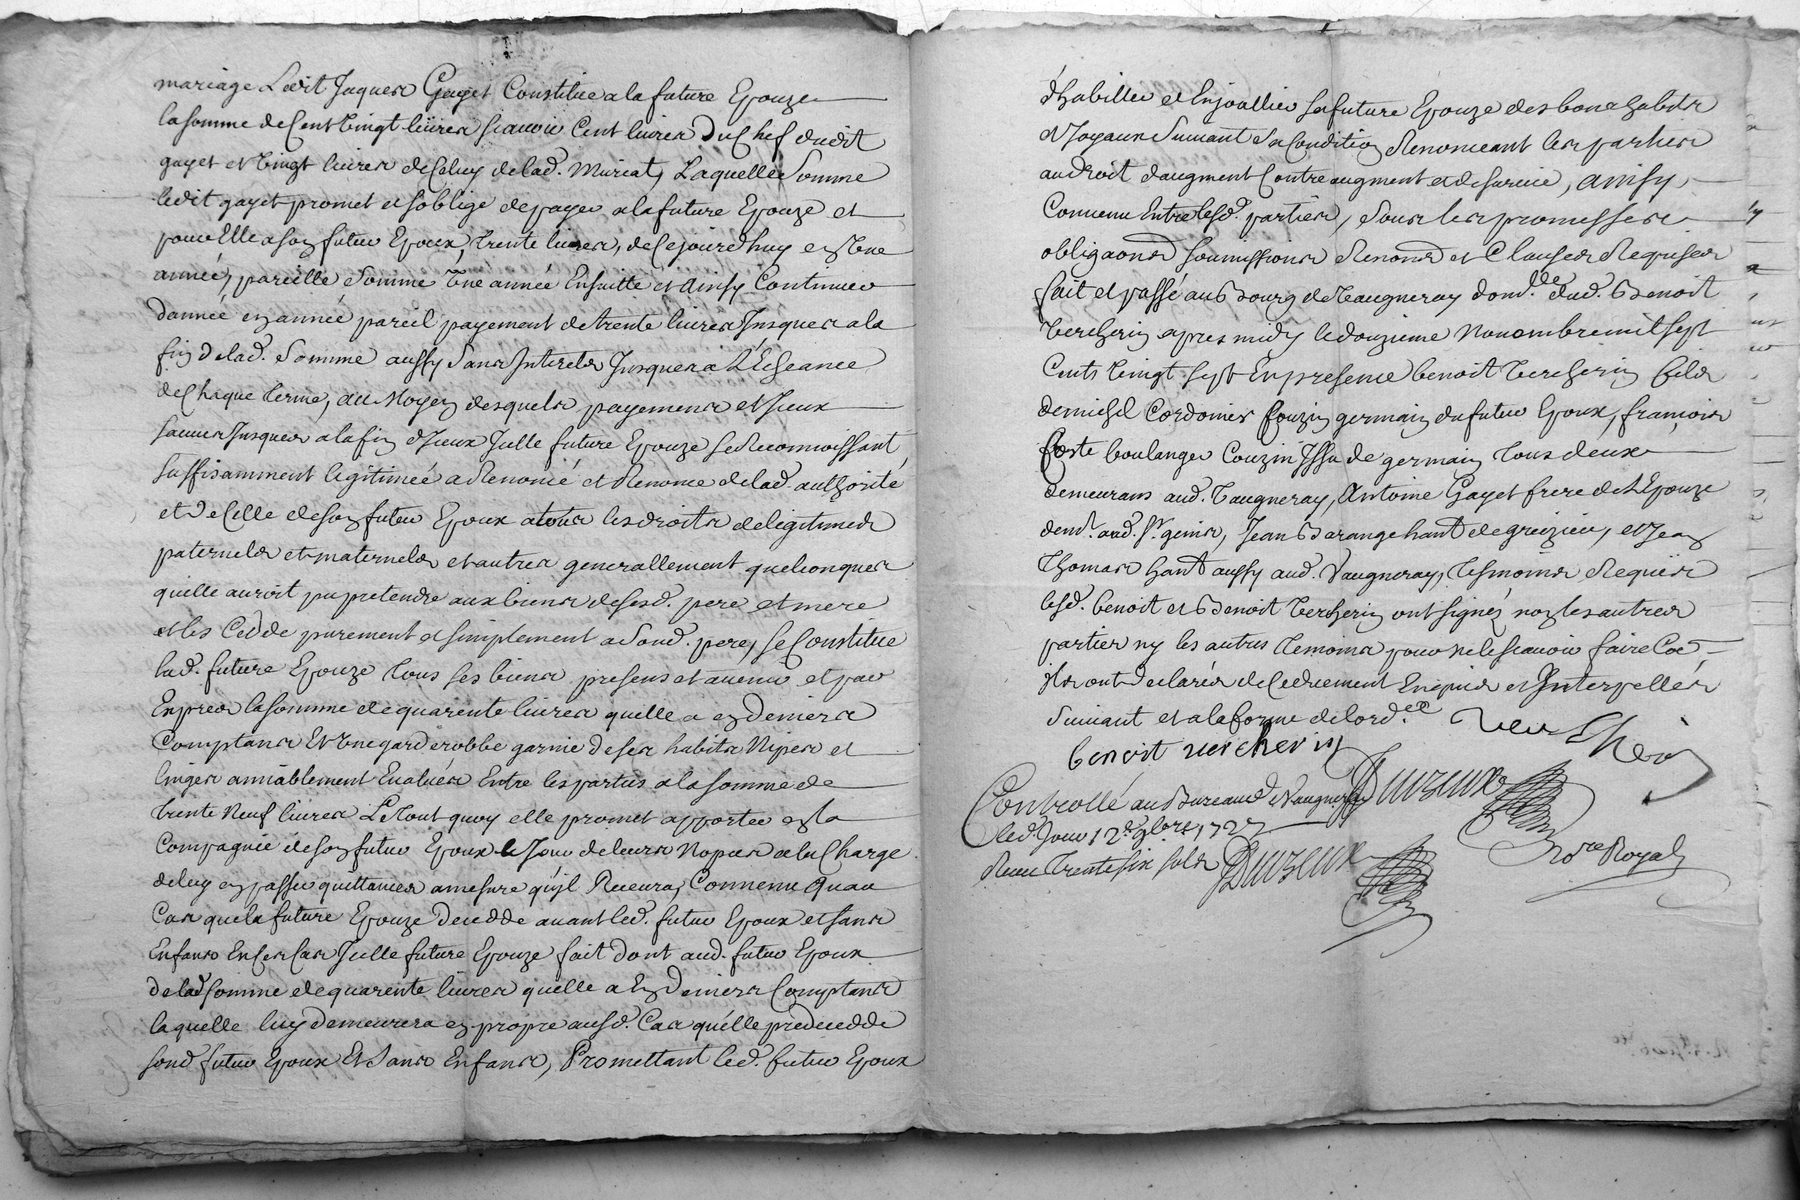 mariage Ledit Jaques Gayet Constitue a la future Epouze
la somme de Cent Vingt livres scauoir Cent livres Du Chef dudit
gayet et Vingt livres de Celuy de lad. Muriat, Laquelle Somme
ledit gayet promet et s'oblige de payer a la future Epouze et
pour Elle a son futur Epoux, trente livres, de Cejourd'huy en Une
année, pareille Somme Une année Ensuitte et Ainsy Continuer
d'année en année pareil payement de trente livres Jusques a la
fin de lad. Somme aussy Sans Interets Jusques a L'Echeance
de Chaque terme, au Moyen desquels payements et Jceux
sauues Jusques a la fin d'Jceux Jcelle future Epouze se Reconnoissant
suffisamment legitimée a Renoncé et Renonce de lad. authorité
et de Celle de son futur Epoux a tous les droits de legitimes
paternels et maternels et autres generallement quelconques
quelle auroit pu pretendre aux biens de sesd. pere et mere
et les Cedde purement et simplement a Sond. pere, se Constitue
lad. future Epouze tous ses biens presens et auenir et par
Exprés la somme de quarente livres quelle a en deniers
Comptans Et Une garderobbe garnie de ses habits Nipes et
linges amiablement Eualués Entre les parties a la somme de
trente Neuf livres Le tout quoy elle promet apporter en la
Compagnie de son futur Epoux le Jour de leurs Nopces a la Charge
de luy en passer quittances a mesure qu'jl Receura, Conuenu Quau
Cas que la future Epouze decedde auant led. futur Epoux et sans
Enfans En Ces Cas Jcelle future Epouze fait dont aud. futur Epoux
de lad. somme de quarente livres quelle a En Deniers Comptans
laquelle luy demeurera en propre ausd. Cas qu'elle predecedde
sond. futur Epoux Et Sans Enfans, Promettant led. futur Epoux
d'habiller et Enjoallier sa future Epouze de bons habits
et Joyaux Suiuant Sa Condition Renonceant les parties
au droit d'augment Contreaugment et de suruie, Ainsy
Conuenu Entre lesd. parties, Sous les promesses
obliga͠ons soumissions Renon͠s et Clauses Requises
fait et passé au Bourg de Vaugneray dom.lle dud. Benoit
Vercherin apres midy le douzieme Nouembre mil sept
Cents Vingt sept En presence benoit Vercherin fils
de michel Cordonier Couzin germain du futur Epoux, francois
Coste boulanger Couzin Issu de germain tous deux
demeurans aud. Vaugneray, Antoine Gayet frere de L'Epouze
dem.t aud. St. genis, Jean Barange hant de grezieu, et Jean
Thomas hant aussy aud. Vaugneray, tesmoins Requis
lesd. benoit et Benoit Vercherin ont signéz non les autres
parties ny les autres temoins pour ne le scauoir faire Co͠e
ils ont declarés de Ce duement Enquis et Interpellés
Suiuant et a la forme de l'ord.ce Vercherin
benoit vercherin
Controllé au Bureau de Vaugneray Duzeux
led. Jour 12.e 9bre 1727
Receu trente six sols Duzeux
No.re Royal